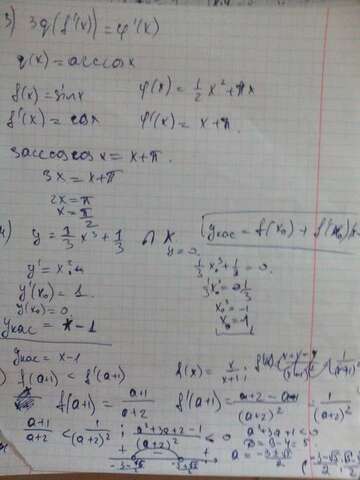 3) 3q(f'(x)) = φ'(x)
q(x) = arccosx
f(x) = sinx φ(x) = 1/2 x² + πx
f'(x) = cosx φ'(x) = x + π.
3arccoscosx = x + π.
3x = x + π
2x = π
x = π/2
4) y = 1/3 x³ + 1/3 ∩ X y = 0. y кас = f(x₀) + f'(x₀)(
1/3 x₀³ + 1/3 = 0.
y' = x²
1/3 x₀³ = -1/3
y'(x₀) = 1.
x₀³ = -1
y(x₀) = 0.
x₀ = -1
y кас = x - 1
y кас = x - 1
) f(a+1) < f'(a+1) f(x) = x/(x+1) ;
f(a+1) = (a+1)/(a+2) f'(a+1) = (a+2-a-1)/(a+2)² = 1/(a+2)²
(a+1)/(a+2) < 1/(a+2)² ; (a²+3a+2-1)/(a+2)² < 0 a²+3a+1<0
D = 9-4 = 5
a = (-3±√5)/2